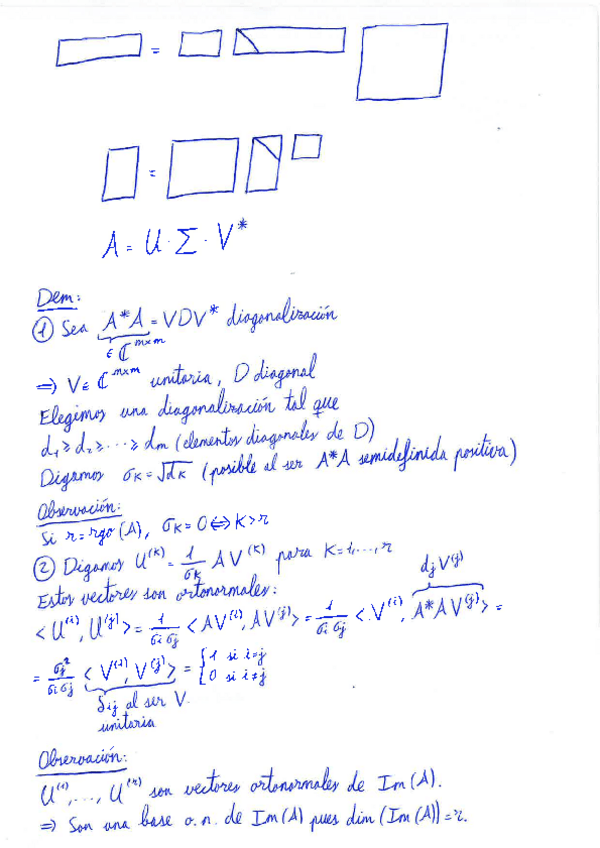 =
=
A = U · Σ · V*
Dem:
① Sea A*A = VDV* diagonalización
∈ ℂ^{m×m}
⇒ V ∈ ℂ^{m×m} unitaria, D diagonal
Elegimos una diagonalización tal que
d₁ ≥ d₂ ≥ ··· ≥ dm (elementos diagonales de D)
Digamos σK = √dK (posible al ser A*A semidefinida positiva)
Observación:
Si r = rgo(A), σK = 0 ⇔ K > r
② Digamos U^{(K)} = 1/σK A V^{(K)} para K = 1, ..., r
Estos vectores son ortonormales: djV^{(j)}
< U^{(i)}, U^{(j)} > = 1/σiσj < AV^{(i)}, AV^{(j)} > = 1/σiσj < V^{(i)}, A*AV^{(j)} > =
= σj²/σiσj < V^{(i)}, V^{(j)} > = { 1 si i=j
0 si i≠j
δij al ser V
unitaria
Observación:
U^{(1)}, ..., U^{(r)} son vectores ortonormales de Im(A).
⇒ Son una base o.n. de Im(A) pues dim(Im(A)) = r.